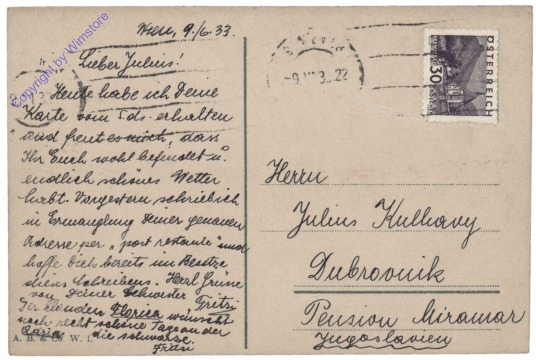 Wien, 9./6.33.
Lieber Julius!
Heute habe ich Deine
Karte vom 5. ds. erhalten
und freut es mich, dass
Ihr Euch wohl befindet u.
endlich schönes Wetter
habt. Vorgestern schrieb ich
in Ermanglung Deiner genauen
Adresse per „post restante" und
hoffe Dich bereits im Besitze
dieses Schreibens. Herzl. Grüsse
von Deiner Schwester Fritzi
Der blonden Florica wünscht
noch recht schöne Tage an der
die schwarze
Fritzi
A. B. & Co. W. I.
Herrn
Julius Kulhavy
Dubrovnik
Pension Miramar
Jugoslavien
ÖSTERREICH
30
WIEN
Copyright by Wimstore